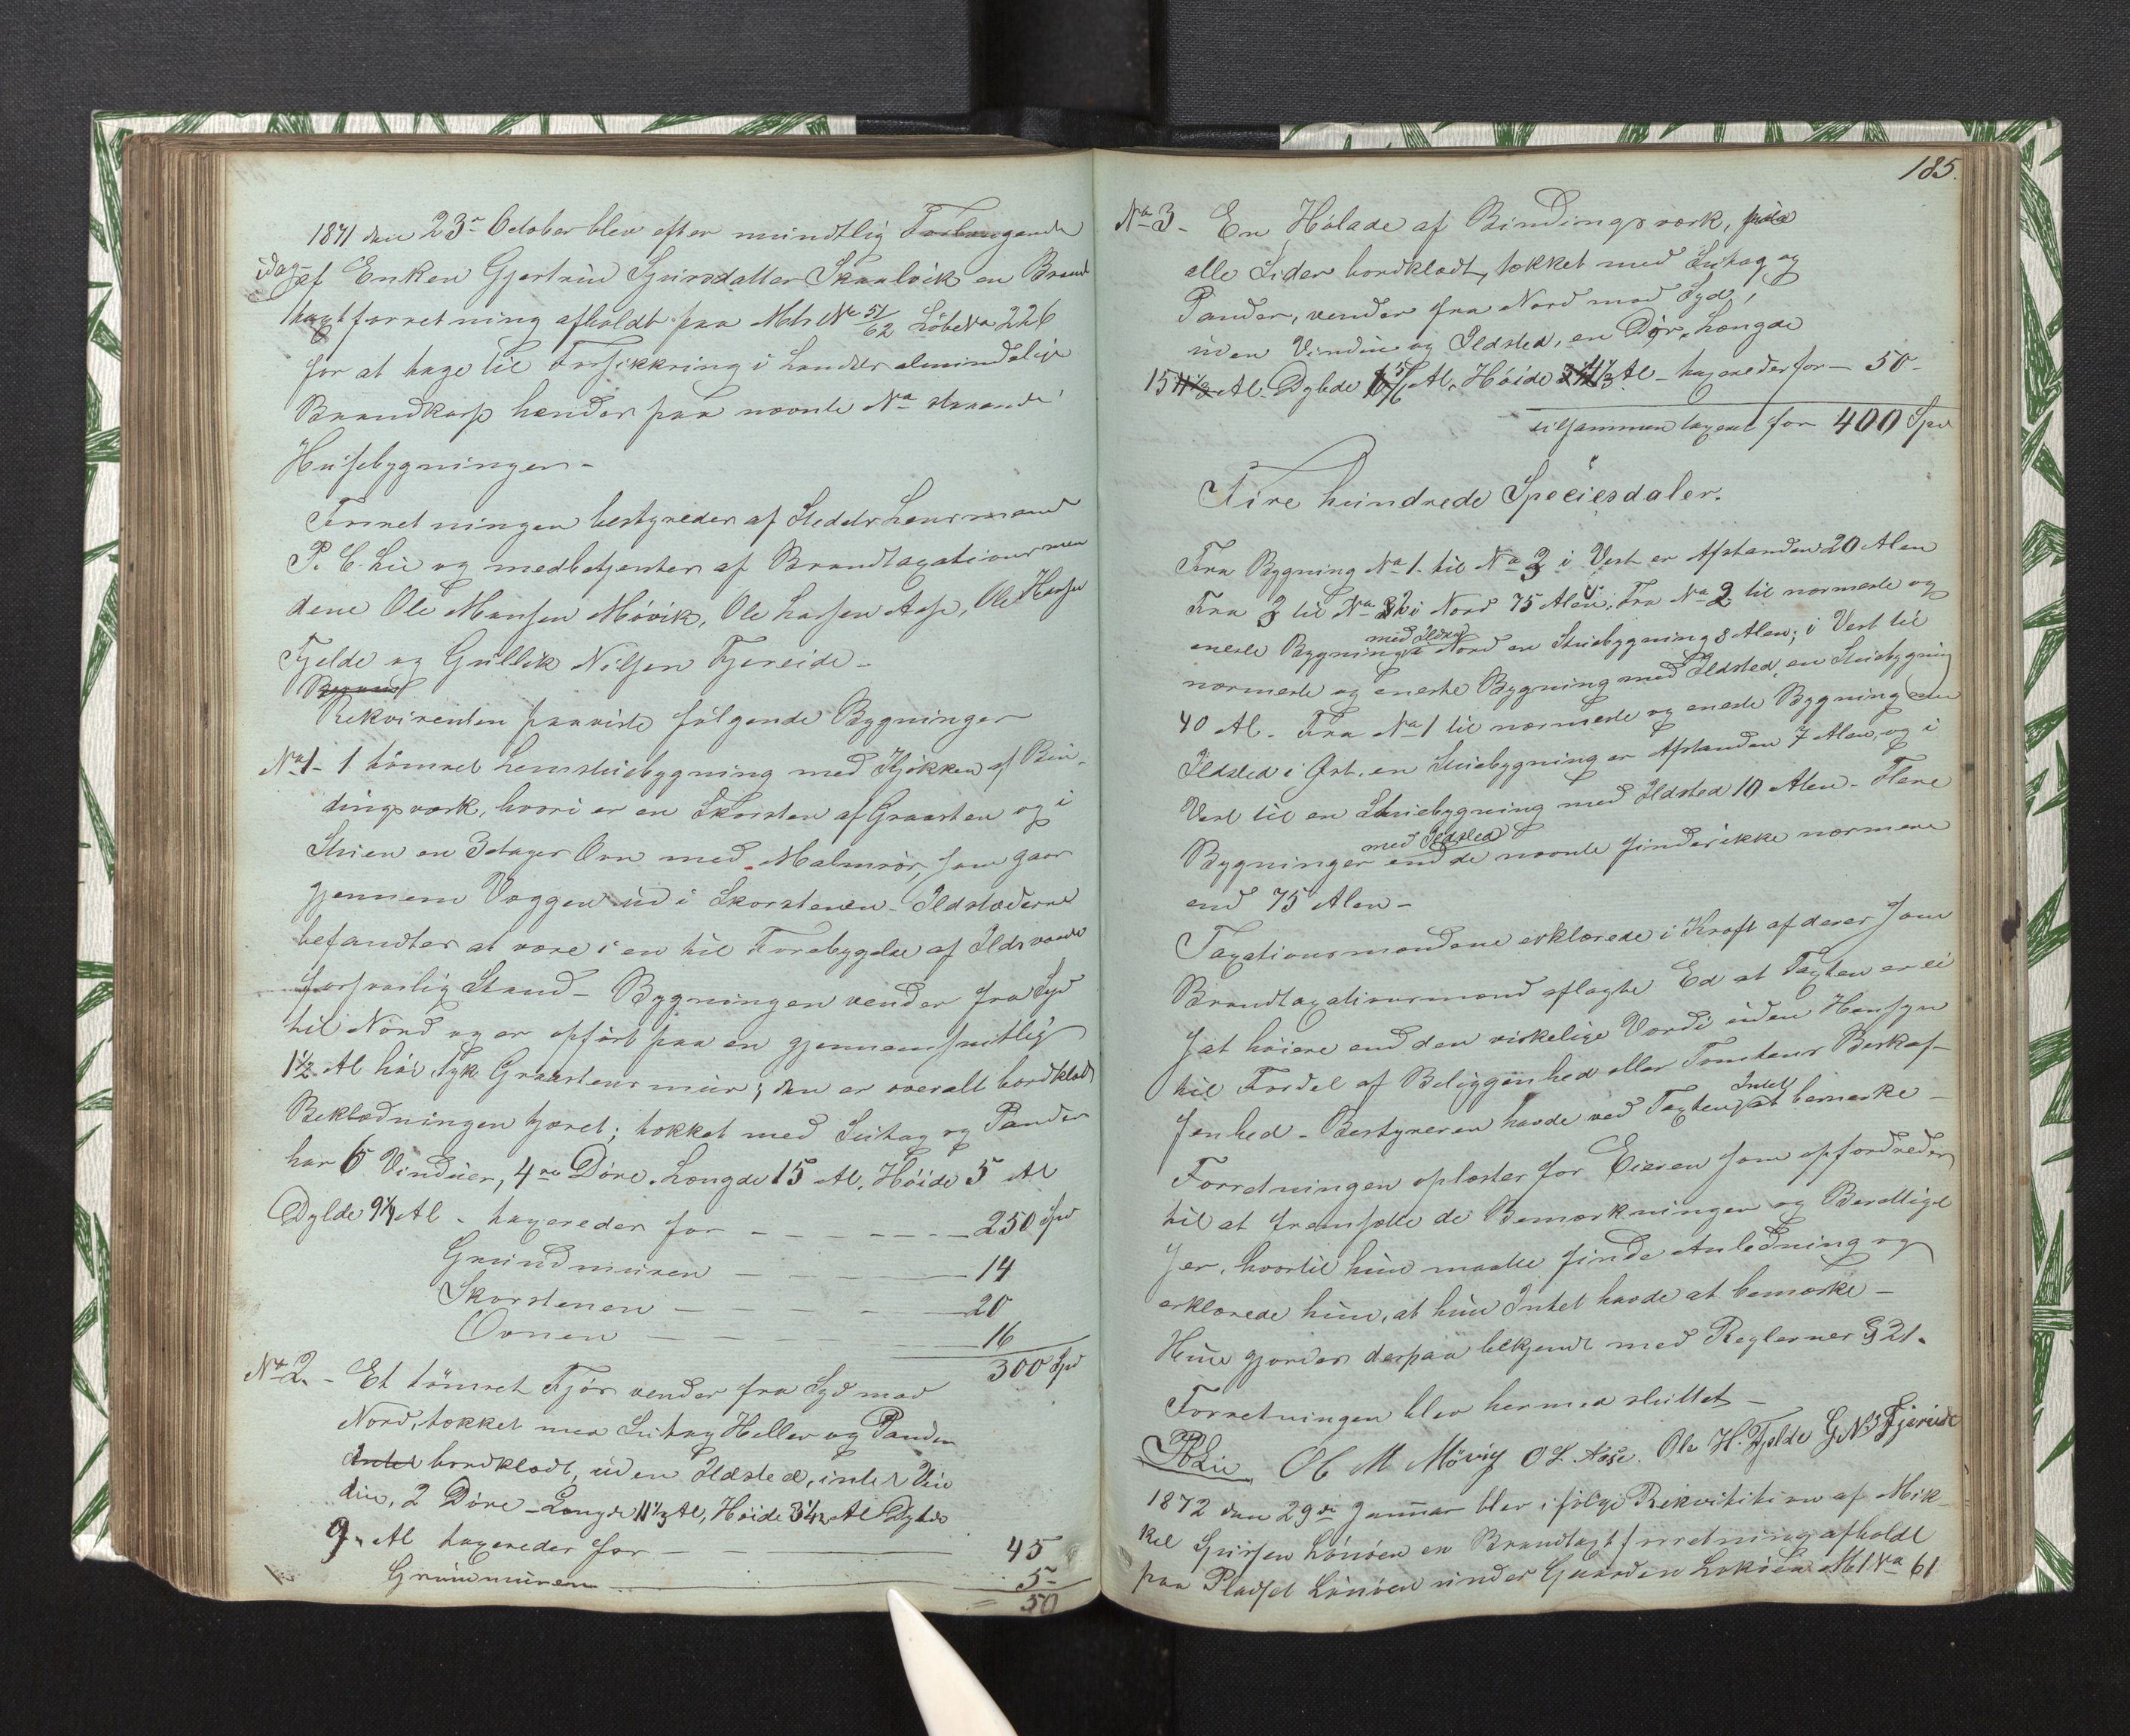 1871 den 23de October blev efter mundtlig Forlangende
idag af Enken Gjertrud Sjursdatter Skaalvik en Brand
taxtforretning afholdt paa Mtr No 51/62 Löbe No 226
for at tage til Forsikkring i Landets almindelige
Brandkasse hendes paa nævnte No staaende
Husebygninger -
Forretningen bestyredes af Stedets Lensmand
P. C. Lie og medbetjentes af Brandtaxationsmen
dene Ole Monsen Mövik, Ole Larsen Aase, Ole Hansen
Fjelde og Gullik Nilsen Fjereide -
Rekvirenten paaviste fölgende Bygninger
No 1 - 1 tömret Lemstuebygning med Kjökken af Bin-
dingsværk, hvori er en Skorsten af Graasten og i
Stuen en 3 etages Ovn med Malmrör, som gaar
gjennem Væggen ud i Skorstenen - Ildstæderne
befandtes at være i en til Forebyggelse af Ildsvaade
forsvarlig Stand - Bygningen vender fra Syd
til Nord og er opfört paa en gjennemsnitlig
1½ Al höi, tyk Graastensmur; den er overalt bordklædt
Beklædningen tjæret; tækket med Sutag og Pander
har 6 Vinduer, 4re Döre. Længde 15 Al. Höide 5 Al
Dybde 9¼ Al - taxeredes for - - - - - 250 Spd
Grundmuren - - - - 14
Skorstenen - - - - 20
Ovnen - - - - 16
300 Spd
No 2. - Et tömret Fjös vender fra Syd mod
Nord, tækket med Sutag Heller og Pander
bordklædt, uden Ildsted, intet Vin
due, 2 Döre - Længde 11⅓ Al, Höide 3½ Al Dybde
9 Al taxeredes for - - 45
Grundmuren 5 -
= 50
185.
No 3 - En Hölade af Bindingsværk, paa
alle Sider bordklædt, tækket med Sutag og
Pander, vender fra Nord mod Syd,
uden Vindue og Ildsted, en Dör, Længde
15 Al. Dybde 5/6 Al. Höide 4⅓ Al - taxeredes for - 50 -
tilsammen taxeret for 400 Spd
Fire hundrede Speciesdaler.
Fra Bygning No 1. til No 3 i Vest er Afstanden 20 Alen
Fra 3 til No 2 i Nord 75 Alen; Fra No 2 til nærmeste og
eneste Bygning med Ildsted i Nord en Stuebygning 8 Alen; i Vest til
nærmeste og eneste Bygning med Ildsted, en Stuebygning
40 Al - Fra No 1 til nærmeste og eneste Bygning med
Ildsted i Öst, en Stuebygning er Afstanden 7 Alen, og i
Vest til en Stuebygning med Ildsted 10 Alen - Flere
Bygninger med Ildsted end de nævnte findes ikke nærmere
end 75 Alen -
Taxationsmændene erklærede i Kraft af deres som
Brandtaxationsmænd aflagte Ed at Taxten er ei
sat höiere end den virkelige Værdi uden Hensyn
til Fordel af Beliggenhed eller Tomtens Beskaf-
fenhed - Bestyreren havde ved Taxten Intet at bemærke -
Forretningen oplæstes for Eieren som opfordredes
til at fremsætte de Bemærkninger og Berettigel
ser, hvortil hun maatte finde Anledning og
erklærede hun, at hun Intet havde at bemærke -
Hun gjordes derpaa bekjendt med Reglernes § 21.
Forretningen blev hermed sluttet -
PCLie Ole M Mövig O L. Aase. Ole H. Fjelde G. N. Fjereide
1872 den 29de Januar blev i fölge Rekvisition af Mik-
kel Sjursen Lönöen en Brandtaxtforretning afholdt
paa Pladsen Lönöen under Gaarden Loköen M1 No 61